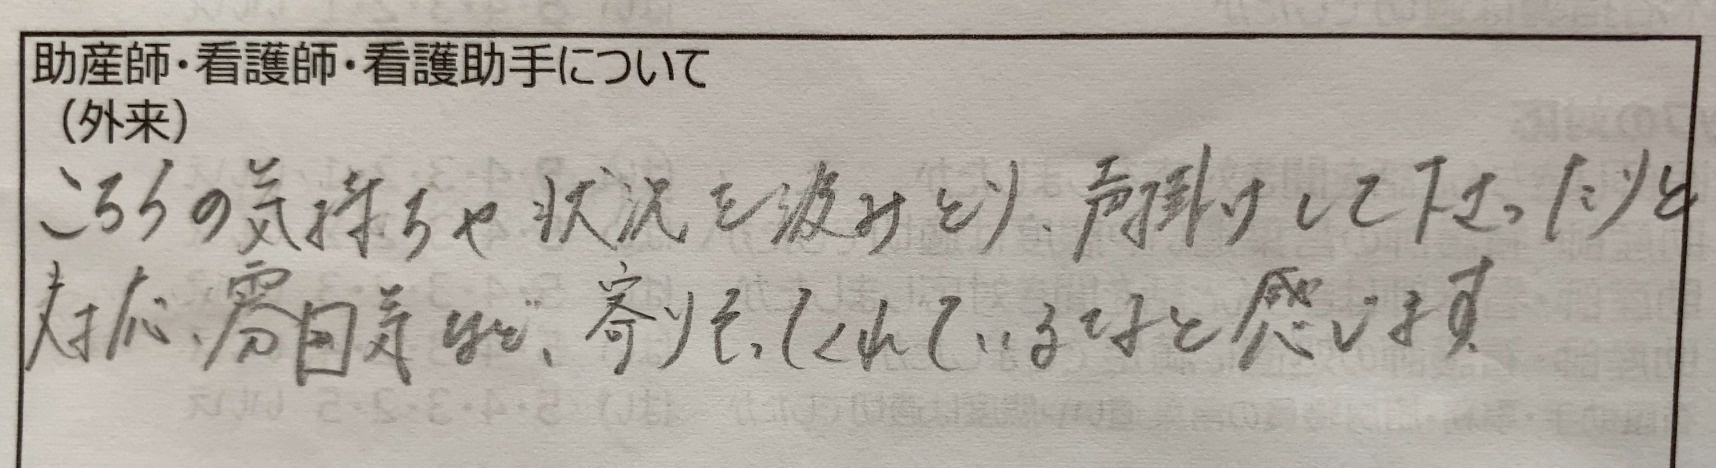 助産師・看護師・看護助手について
（外来）
こちらの気持ちや状況を汲みとり、声掛けして下さったりと
対応、雰囲気など、寄りそってくれているなと感じます